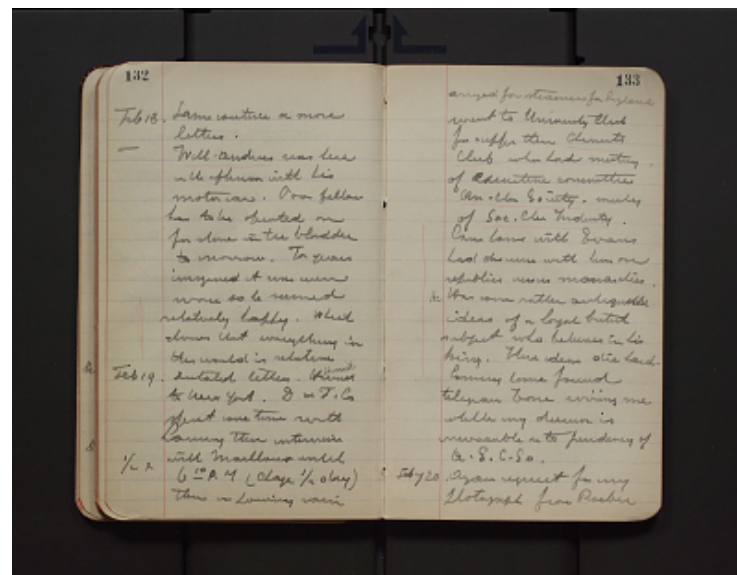 132
Feb 18. Same routine & more
letters.
Will was here
in the afternoon with his
motorcar. Poor fellow
has to be operated on
for stone in the bladder
to morrow. To years
imagined it was even
worse so he seemed
relatively happy. Which
shows that everything in
this world is relative
Feb 19. Dictated letters.
to New York. D & T. Co
spent some time with
then interview
with until
6 P.M (charge 1/2 day)
then in pouring rain
133
for steamers for England
went to University Club
for supper then Chemists
Club who had meeting
of executive committee
Am. Che Society. meeting
of Soc. Che Industry.
Came home with Evans
had discuss with him on
republics versus monarchies.
He has some rather
ideas of a loyal british
subject who believes in his
king. These ideas die hard.
Coming home found
telegram from me
while my decision is
as to of
G. B. C. Co.
Feby 20. Again request for my
photograph from